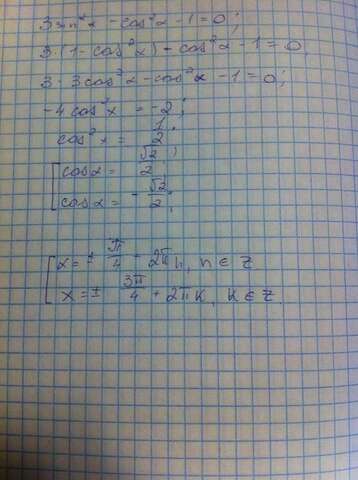 3sin²x - cos²x - 1 = 0;
3(1 - cos²x) - cos²x - 1 = 0;
3 - 3cos²x - cos²x - 1 = 0;
-4cos²x = -2;
cos²x = 1/2;
[cosx = √2/2;
cosx = -√2/2;
[x = ± π/4 + 2πn, n ∈ Z
x = ± 3π/4 + 2πk, k ∈ Z.